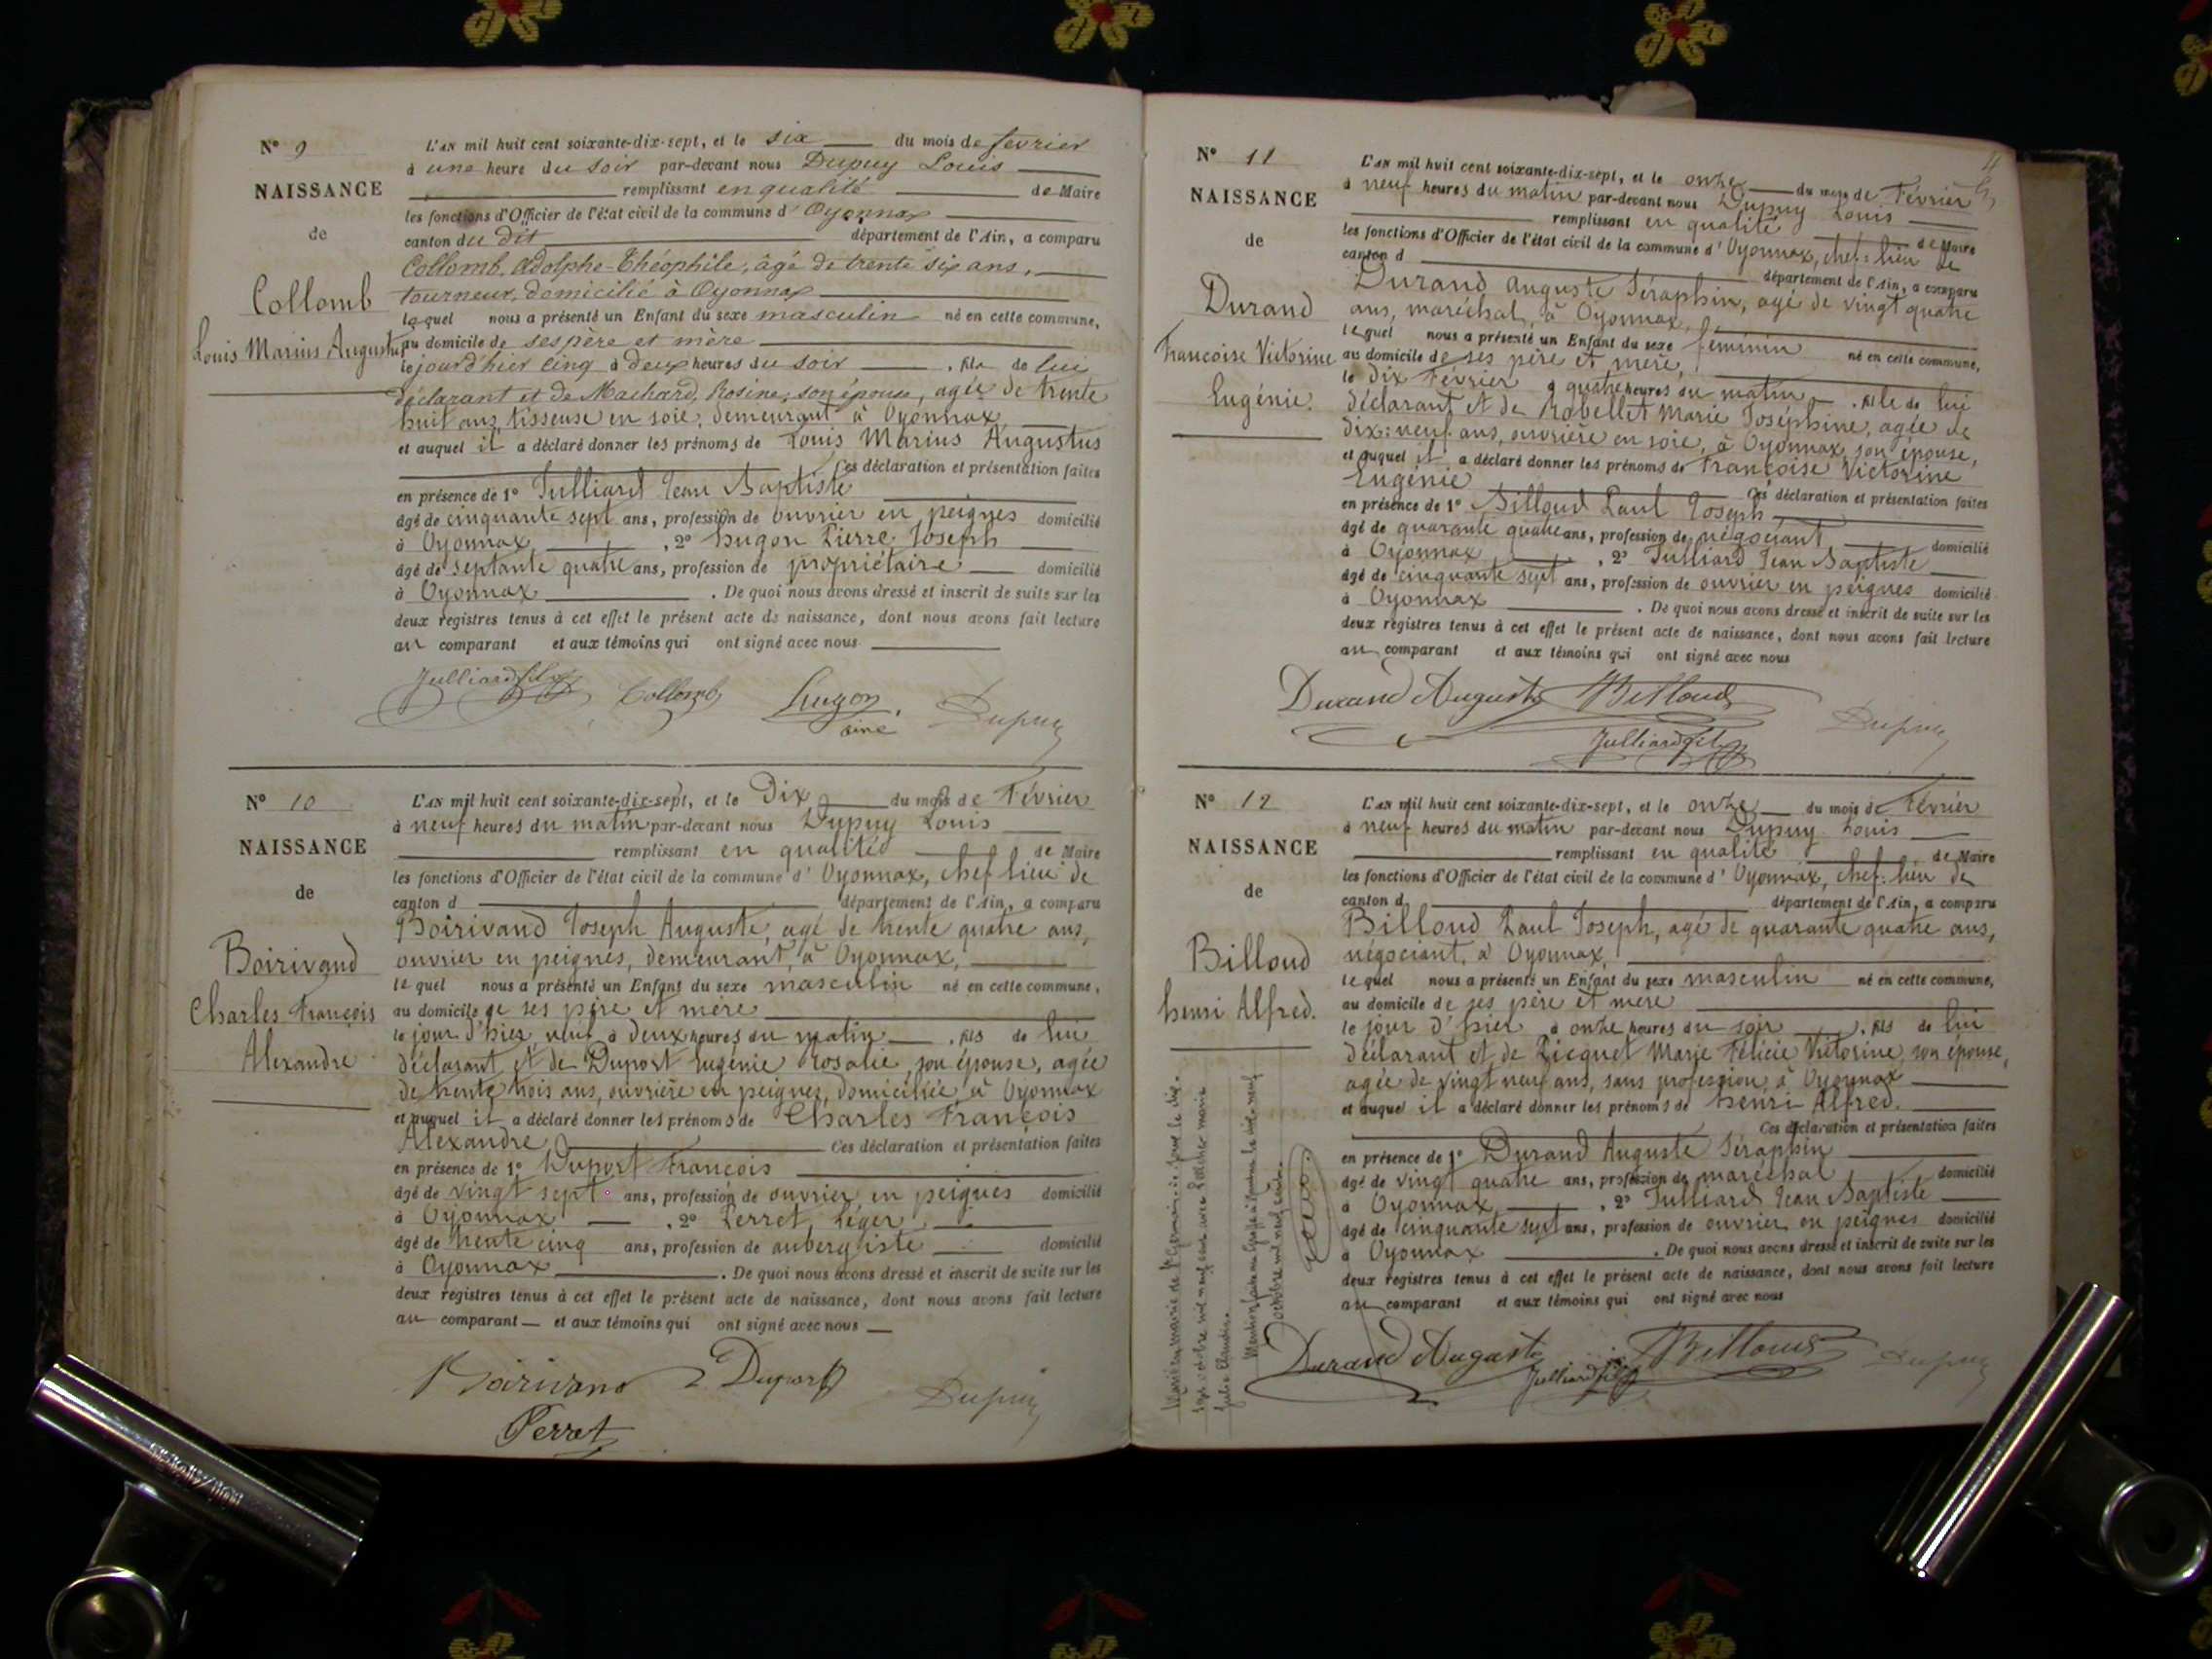 N° 9
NAISSANCE
de
Collomb
Louis Marius Augustus
L'AN mil huit cent soixante-dix-sept, et le six du mois de fevrier
à une heure du soir par-devant nous Dupuy Louis
remplissant en qualité de Maire
les fonctions d'Officier de l'état civil de la commune d'Oyonnax
canton du dit département de l'Ain, a comparu
Collomb, Adolphe-Théophile, âgé de trente six ans,
tourneur, domicilié à Oyonnax
lequel nous a présenté un Enfant du sexe masculin né en cette commune,
au domicile de ses père et mère
le jourd'hier cinq à deux heures du soir, fils de lui
déclarant et de Machard, Rosine, son épouse, agée de trente
huit ans, tisseuse en soie, demeurant à Oyonnax
et auquel il a déclaré donner les prénoms de Louis Marius Augustus
Ces déclaration et présentation faites
en présence de 1° Julliard Jean Baptiste
âgé de cinquante sept ans, profession de ouvrier en peignes domicilié
à Oyonnax, 2° hugon Pierre Joseph
âgé de septante quatre ans, profession de propriétaire domicilié
à Oyonnax. De quoi nous avons dressé et inscrit de suite sur les
deux registres tenus à cet effet le présent acte de naissance, dont nous avons fait lecture
au comparant et aux témoins qui ont signé avec nous
Julliard fils Collomb hugon Dupuy
ainé
N° 10
NAISSANCE
de
Boirivand
Charles François
Alexandre
L'AN mil huit cent soixante-dix-sept, et le Dix du mois de Février
à neuf heures du matin par-devant nous Dupuy Louis
remplissant en qualité de Maire
les fonctions d'Officier de l'état civil de la commune d'Oyonnax, chef lieu de
canton d département de l'Ain, a comparu
Boirivand Joseph Auguste, agé de trente quatre ans,
ouvrier en peignes, demeurant, à Oyonnax,
lequel nous a présenté un Enfant du sexe masculin né en cette commune,
au domicile de ses père et mère
le jour d'hier, neuf à deux heures du matin, fils de lui
déclarant et de Duport Eugénie Rosalie, son épouse, agée
de trente trois ans, ouvrière en peignes, domiciliée, à Oyonnax
et auquel il a déclaré donner les prénoms de Charles François
Alexandre Ces déclaration et présentation faites
en présence de 1° Duport François
âgé de vingt sept ans, profession de ouvrier en peignes domicilié
à Oyonnax, 2° Perret, Léger
âgé de trente cinq ans, profession de aubergiste domicilié
à Oyonnax. De quoi nous avons dressé et inscrit de suite sur les
deux registres tenus à cet effet le présent acte de naissance, dont nous avons fait lecture
au comparant et aux témoins qui ont signé avec nous
Boirivand Duport Dupuy
Perret
N° 11
NAISSANCE
de
Durand
Francoise Victorine
Eugénie.
L'AN mil huit cent soixante-dix-sept, et le onze du mois de Février
à neuf heures du matin par-devant nous Dupuy Louis
remplissant en qualité de Maire
les fonctions d'Officier de l'état civil de la commune d'Oyonnax, chef-lieu de
canton d département de l'Ain, a comparu
Durand Auguste Séraphin, agé de vingt quatre
ans, maréchal, à Oyonnax,
lequel nous a présenté un Enfant du sexe féminin né en cette commune,
au domicile de ses père et mère,
le dix Février à quatre heures du matin, fille de lui
déclarant et de Robellet Marie Joséphine, agée de
dix-neuf ans, ouvrière en soie, à Oyonnax, son épouse,
et auquel il a déclaré donner les prénoms de Françoise Victorine
Eugénie Ces déclaration et présentation faites
en présence de 1° Billoud Paul Joseph
âgé de quarante quatre ans, profession de négociant domicilié
à Oyonnax, 2° Julliard Jean Baptiste
âgé de cinquante sept ans, profession de ouvrier en peignes domicilié
à Oyonnax. De quoi nous avons dressé et inscrit de suite sur les
deux registres tenus à cet effet le présent acte de naissance, dont nous avons fait lecture
au comparant et aux témoins qui ont signé avec nous
Durand Auguste Billoud Dupuy
Julliard fils
N° 12
NAISSANCE
de
Billoud
henri Alfred.
L'AN mil huit cent soixante-dix-sept, et le onze du mois de Février
à neuf heures du matin par-devant nous Dupuy Louis
remplissant en qualité de Maire
les fonctions d'Officier de l'état civil de la commune d'Oyonnax, chef-lieu de
canton d département de l'Ain, a comparu
Billoud Paul Joseph, agé de quarante quatre ans,
négociant, à Oyonnax,
lequel nous a présenté un Enfant du sexe masculin né en cette commune,
au domicile de ses père et mère
le jour d'hier à onze heures du soir, fils de lui
déclarant et de Picquet Marie Félicie Victorine, son épouse,
agée de vingt neuf ans, sans profession, à Oyonnax
et auquel il a déclaré donner les prénoms de henri Alfred.
Ces déclaration et présentation faites
en présence de 1° Durand Auguste Séraphin
âgé de vingt quatre ans, profession de maréchal domicilié
à Oyonnax, 2° Julliard Jean Baptiste
âgé de cinquante sept ans, profession de ouvrier en peignes domicilié
à Oyonnax. De quoi nous avons dressé et inscrit de suite sur les
deux registres tenus à cet effet le présent acte de naissance, dont nous avons fait lecture
au comparant et aux témoins qui ont signé avec nous
Durand Auguste Julliard fils Billoud Dupuy